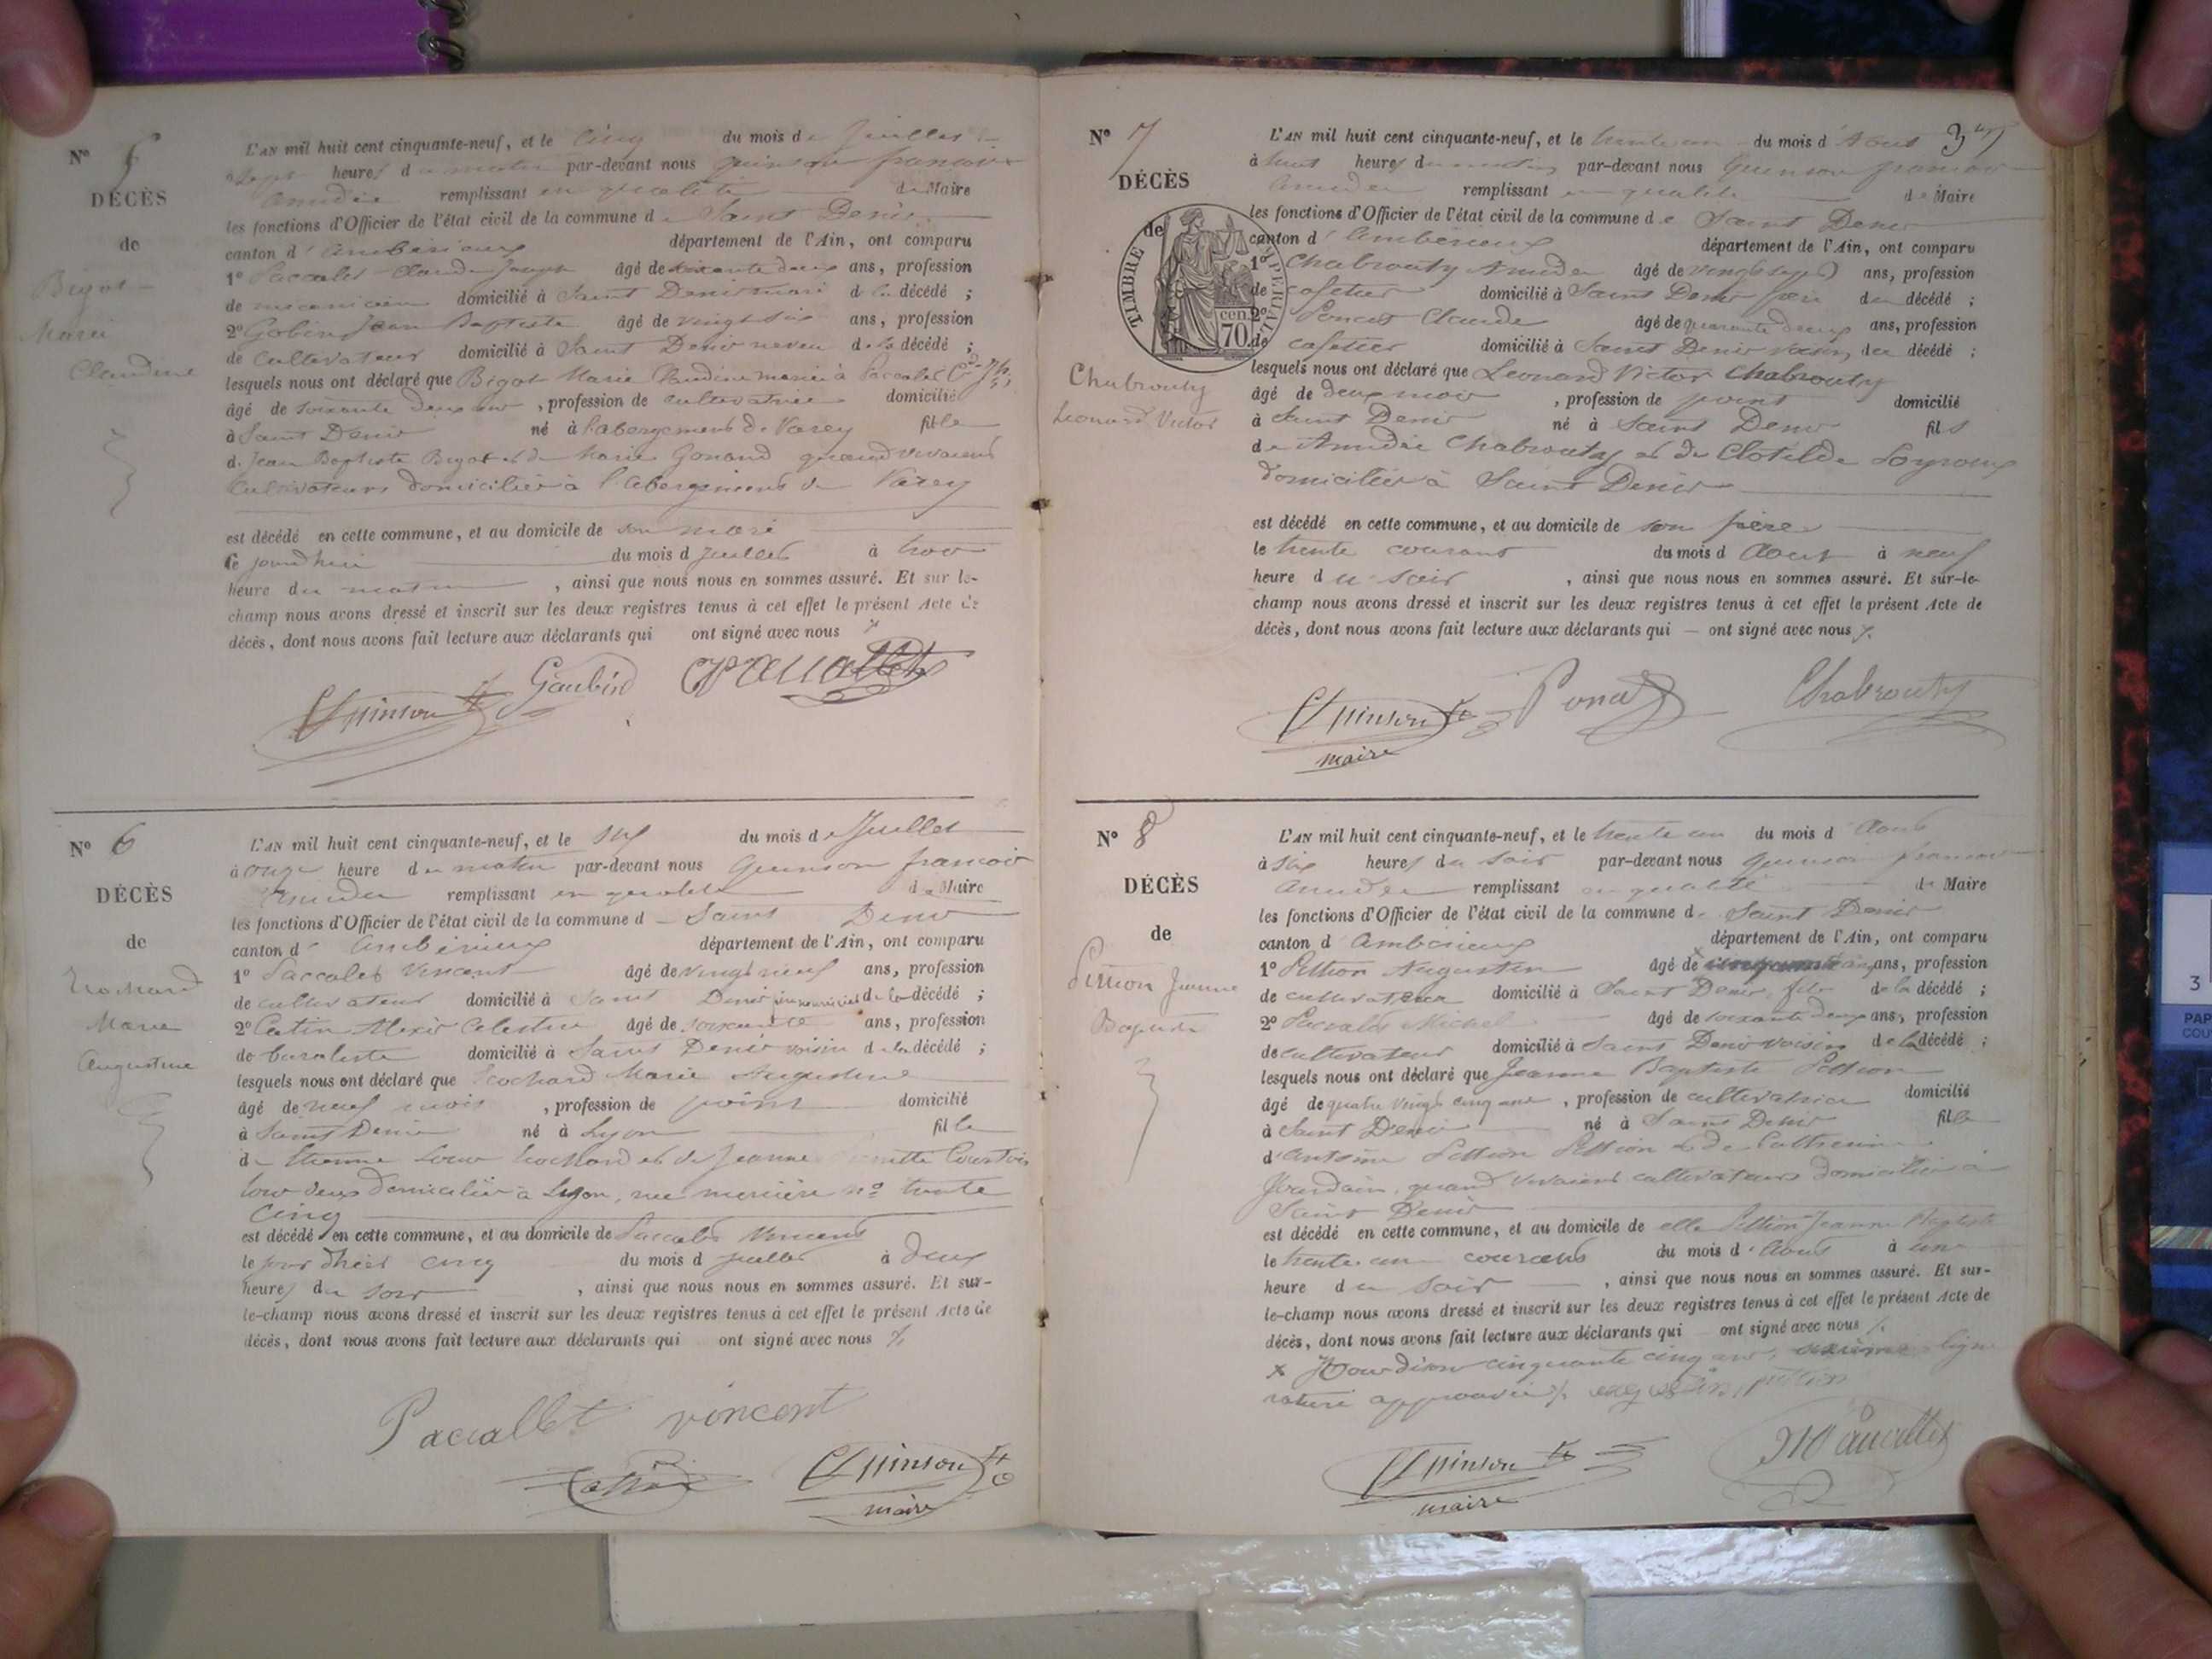 N° 5
DÉCÈS
de
Bigot
Marie
Claudine
L'AN mil huit cent cinquante-neuf, et le cinq du mois de Juillet
à sept heures du matin par-devant nous Quinson françois
Amédée remplissant en qualité de Maire
les fonctions d'Officier de l'état civil de la commune de Saint Denis
canton d'Ambérieux département de l'Ain, ont comparu
1° Paccalet Claude Joseph âgé de soixante deux ans, profession
de mécanicien domicilié à Saint Denis mari de la décédé ;
2° Gobin Jean Baptiste âgé de vingt six ans, profession
de cultivateur domicilié à Saint Denis neveu de la décédé ;
lesquels nous ont déclaré que Bigot Marie Claudine mariée à Paccalet
âgé de soixante deux ans, profession de cultivatrice domicilié
à Saint Denis né à l'abergement de Varey fille
de Jean Baptiste Bigot et de Marie Gonand quand vivaient
cultivateurs domiciliés à l'abergement de Varey
est décédé en cette commune, et au domicile de son mari
ce jourd'hui du mois de juillet à trois
heure du matin, ainsi que nous nous en sommes assuré. Et sur-le-
champ nous avons dressé et inscrit sur les deux registres tenus à cet effet le présent Acte de
décès, dont nous avons fait lecture aux déclarants qui ont signé avec nous
Quinson Gaubin Paccallet
N° 6
DÉCÈS
de
Trochard
Marie
Augustine
L'AN mil huit cent cinquante-neuf, et le six du mois de Juillet
à onze heure du matin par-devant nous Quinson françois
Amédée remplissant en qualité de Maire
les fonctions d'Officier de l'état civil de la commune de Saint Denis
canton d'Ambérieux département de l'Ain, ont comparu
1° Paccalet Vincent âgé de vingt neuf ans, profession
de cultivateur domicilié à Saint Denis de la décédé ;
2° Cattin Alexis Célestin âgé de soixante ans, profession
de buraliste domicilié à Saint Denis voisin de la décédé ;
lesquels nous ont déclaré que Trochard Marie Augustine
âgé de neuf mois, profession de point domicilié
à Saint Denis né à Lyon fille
de Etienne Louis Trochard et de Jeanne Courtois
tous deux domiciliés à Lyon, rue mercière n° trente
cinq
est décédé en cette commune, et au domicile de Paccalet Vincent
le jour d'hier cinq du mois de juillet à deux
heures du soir, ainsi que nous nous en sommes assuré. Et sur-
le-champ nous avons dressé et inscrit sur les deux registres tenus à cet effet le présent Acte de
décès, dont nous avons fait lecture aux déclarants qui ont signé avec nous
Paccallet vincent
Cattin Quinson
maire
N° 7
DÉCÈS
de
TIMBRE IMPÉRIAL
70 cen.
Chabrouty
Leonard Victor
L'AN mil huit cent cinquante-neuf, et le trente un du mois d'Aout
à huit heures du matin par-devant nous Quinson françois
Amédée remplissant en qualité de Maire
les fonctions d'Officier de l'état civil de la commune de Saint Denis
canton d'Ambérieux département de l'Ain, ont comparu
1° Chabrouty Amédée âgé de vingt sept ans, profession
de cafetier domicilié à Saint Denis père du décédé ;
2° Poncet Claude âgé de quarante deux ans, profession
de cafetier domicilié à Saint Denis voisin du décédé ;
lesquels nous ont déclaré que Leonard Victor Chabrouty
âgé de deux mois, profession de point domicilié
à Saint Denis né à Saint Denis fils
de Amédée Chabrouty et de Clotilde
domiciliés à Saint Denis
est décédé en cette commune, et au domicile de son père
le trente courant du mois d'Aout à neuf
heure du soir, ainsi que nous nous en sommes assuré. Et sur-le-
champ nous avons dressé et inscrit sur les deux registres tenus à cet effet le présent Acte de
décès, dont nous avons fait lecture aux déclarants qui ont signé avec nous
Quinson Poncet Chabrouty
maire
N° 8
DÉCÈS
de
Pittion Jeanne
Baptiste
L'AN mil huit cent cinquante-neuf, et le trente un du mois d'Aout
à six heures du soir par-devant nous Quinson françois
Amédée remplissant en qualité de Maire
les fonctions d'Officier de l'état civil de la commune de Saint Denis
canton d'Ambérieux département de l'Ain, ont comparu
1° Pittion Augustin âgé de ans, profession
de cultivateur domicilié à Saint Denis fils de la décédé ;
2° Paccalet Michel âgé de soixante deux ans, profession
de cultivateur domicilié à Saint Denis voisin de la décédé ;
lesquels nous ont déclaré que Jeanne Baptiste Pittion
âgé de quatre vingt cinq ans, profession de cultivatrice domicilié
à Saint Denis né à Saint Denis fille
d'Antoine Pittion Pittion et de Catherine
Jourdain, quand vivaient cultivateurs domiciliés à
Saint Denis
est décédé en cette commune, et au domicile de elle Pittion Jeanne Baptiste
le trente un courant du mois d'Aout à une
heure du soir, ainsi que nous nous en sommes assuré. Et sur-
le-champ nous avons dressé et inscrit sur les deux registres tenus à cet effet le présent Acte de
décès, dont nous avons fait lecture aux déclarants qui ont signé avec nous
x Nous disons cinquante cinq ans, sixième ligne
rature approuvée pittion
Quinson Paccallet
maire
3
PAP
COU